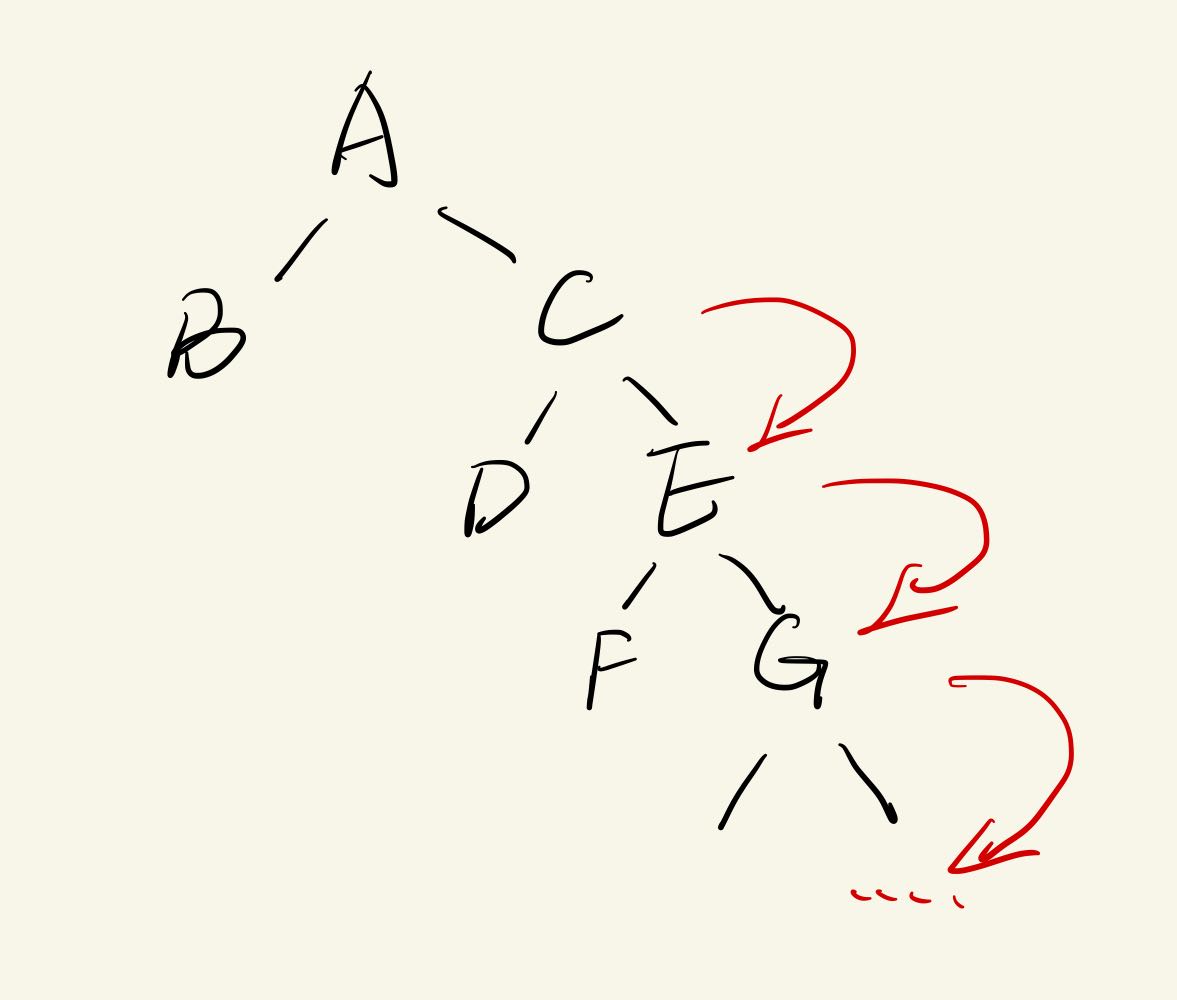 A
B C
D E
F G